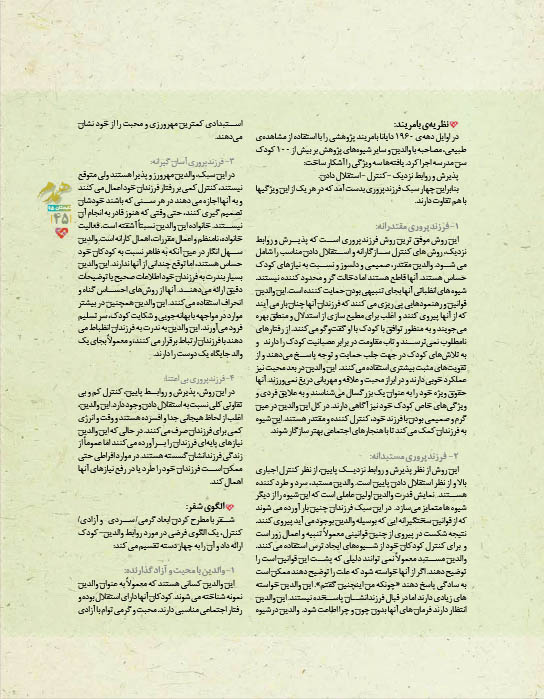 نظریه‌ی بامریند:
در اوایل دهه‌ی ۱۹۶۰ دایانا بامریند پژوهشی را با استفاده از مشاهده‌ی
طبیعی، مصاحبه با والدین و سایر شیوه‌های پژوهش بر بیش از ۱۰۰ کودک
سن مدرسه اجرا کرد. یافته‌ها سه ویژگی را آشکار ساخت:
پذیرش و روابط نزدیک -کنترل - استقلال دادن.
بنابراین چهار سبک فرزندپروری بدست آمد که در هر یک از این ویژگیها
با هم تفاوت دارند.
۱- فرزندپروری مقتدرانه:
این روش موفق ترین روش فرزندپروری است که پذیرش و روابط
نزدیک، روش های کنترل سازگارانه و استقلال دادن مناسب را شامل
می شود. والدین مقتدر، صمیمی و دلسوز و نسبت به نیازهای کودک
حساس هستند. آنها قاطع هستند اما دخالت گر و محدود کننده نیستند.
شیوه های انضباطی آنها بجای تنبیهی بودن حمایت کننده است. این والدین
قوانین و رهنمودهایی پی ریزی می کنند که فرزندان آنها چنان بار می آیند
که از آنها پیروی کنند و اغلب برای مطیع سازی از استدلال و منطق بهره
می‌جویند و به منظور توافق با کودک با او گفت‌وگو می‌کنند. از رفتارهای
نامطلوب نمی‌ترسند و تاب مقاومت در برابر عصبانیت کودک را دارند و
به تلاش‌های کودک در جهت جلب حمایت و توجه پاسخ می‌دهند و از
تقویت‌های مثبت بیشتری استفاده می‌کنند. این والدین در بعد محبت نیز
عملکرد خوبی دارند و در ابراز محبت و علاقه و مهربانی دریغ نمی‌ورزند. آنها
حقوق ویژه خود را به عنوان یک بزرگسال می‌شناسند و به علایق فردی و
ویژگی‌های خاص کودک خود نیز آگاهی دارند. در کل این والدین در عین
گرم و صمیمی بودن با فرزند خود، کنترل کننده و مقتدر هستند. این شیوه
به فرزندان کمک می‌کند تا با هنجارهای اجتماعی بهتر سازگار شوند.
۲- فرزندپروری مستبدانه:
این روش از نظر پذیرش و روابط نزدیک پایین، از نظر کنترل اجباری
بالا و از نظر استقلال دادن پایین است. والدین مستبد، سرد و طرد کننده
هستند. نمایش قدرت والدین اولین عاملی است که این شیوه را از دیگر
شیوه ها متمایز می‌سازد. در این سبک فرزندان چنین بار آورده می شوند
که از قوانین سختگیرانه ایی که بوسیله والدین بوجود می آید پیروی کنند.
نتیجه شکست در پیروی از چنین قوانینی معمولاً تنبیه و اعمال زور است
و برای کنترل کودکان خود از شیوه‌های ایجاد ترس استفاده می‌کنند.
والدین مستبد معمولاً نمی توانند دلیلی که پشت این قوانین است را
توضیح دهند. اگر از آنها خواسته شود که علت را توضیح دهند ممکن است
به سادگی پاسخ دهند «چونکه من اینچنین گفتم». این والدین خواسته
های زیادی دارند اما در قبال فرزندانشان پاسخده نیستند. این والدین
انتظار دارند فرمان‌های آنها بدون چون و چرا اطاعت شود. والدین در شیوه
استبدادی کمترین مهرورزی و محبت را از خود نشان
می‌دهند.
۳- فرزندپروری آسان گیرانه:
در این سبک، والدین مهرورز و پذیرا هستند ولی متوقع
نیستند، کنترل کمی بر رفتار فرزندان خود اعمال می کنند
و به آنها اجازه می دهند در هر سنی که باشند خودشان
تصمیم گیری کنند، حتی وقتی که هنوز قادر به انجام آن
نیستند. خانواده این والدین نسبتاً آشفته است. فعالیت
خانواده، نامنظم و اعمال مقررات، اهمال کارانه است. والدین
سهل انگار در عین آنکه به ظاهر نسبت به کودکان خود
حساس هستند، اما توقع چندانی از آنها ندارند. این والدین
بسیار بندرت به فرزندان خود اطلاعات صحیح یا توضیحات
دقیق ارائه می‌دهند. آنها از روش‌های احساس گناه و
انحراف استفاده می‌کنند. این والدین همچنین در بیشتر
موارد در مواجهه با بهانه‌جویی و شکایت کودک، سر تسلیم
فرود می‌آورند. این والدین به ندرت به فرزندان انظباط می
دهند با فرزندان ارتباط برقرار می کنند، و معمولاً بجای یک
والد جایگاه یک دوست را دارند.
۴- فرزندپروری بی اعتنا:
در این روش، پذیرش و روابط پایین، کنترل کم و بی
تفاوتی کلی نسبت به استقلال دادن وجود دارد. این والدین،
اغلب از لحاظ هیجانی جدا و افسرده هستند و وقت و انرژی
کمی برای فرزندان صرف می کنند. در حالی که این والدین
نیازهای پایه‌ای فرزندان را برآورده می‌کنند اما عموماً از
زندگی فرزندانشان گسسته هستند. در موارد افراطی حتی
ممکن است فرزندان خود را طرد یا در رفع نیازهای آنها
اهمال کند.
الگوی شفر:
شفر با مطرح کردن ابعاد گرمی/سردی و آزادی/
کنترل، یک الگوی فرضی در مورد روابط والدین- کودک
ارائه داد و آن را به چهار دسته تقسیم می‌کند:
۱- والدین با محبت و آزاد گذارنده:
این والدین کسانی هستند که معمولاً به عنوان والدین
نمونه شناخته می شوند. کودکان آنها دارای استقلال بوده و
رفتار اجتماعی مناسبی دارند. محبت و گرمی توام با آزادی
۴۵